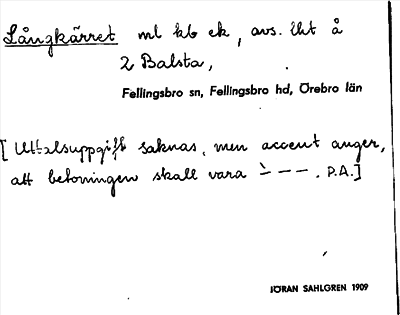 Långkärret ml kb ek, avs. lht å
2 Balsta,
Fellingsbro sn, Fellingsbro hd, Örebro län
[Uttalsuppgift saknas, men accent anger,
att betoningen skall vara `– – –. P.A.]
JÖRAN SAHLGREN 1909